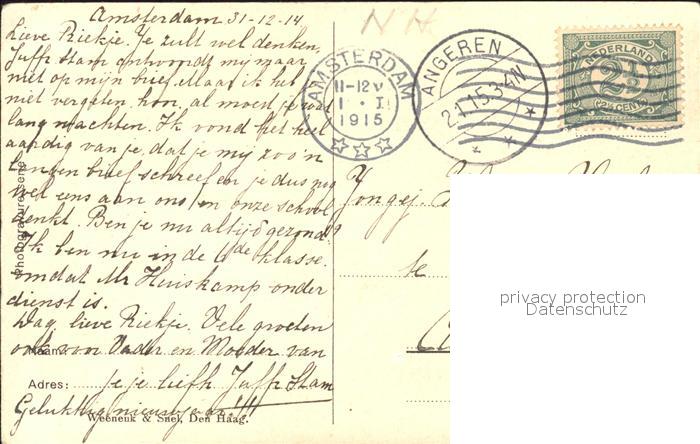 Amsterdam 31-12-14
Lieve Riekje. Je zult wel denken,
Juffr Stam antwoordt mij maar
niet op mijn brief. Maar ik heb
niet vergeten hoor, al moest je wat
lang wachten. Ik vond het heel
aardig van je, dat je mij zoo'n
langen brief schreef en je dus nog
wel eens aan ons en onze school
denkt. Ben je nu altijd gezond?
Ik ben nu in de 6de klasse.
omdat Mr Huiskamp onder
dienst is.
Dag, lieve Riekje. Vele groeten
ook voor Vader en Moeder van
Naam:
Adres: je je liefh. Juffr Stam
Gelukkig nieuwjaar!!!
Weenenk & Snel, Den Haag.
NH
AMSTERDAM
11-12 V
1 . I
1915
ANGEREN
2.1.15.3-4N
NEDERLAND
2½
(2½ CENT)
Jongej.
te
privacy protection
Datenschutz